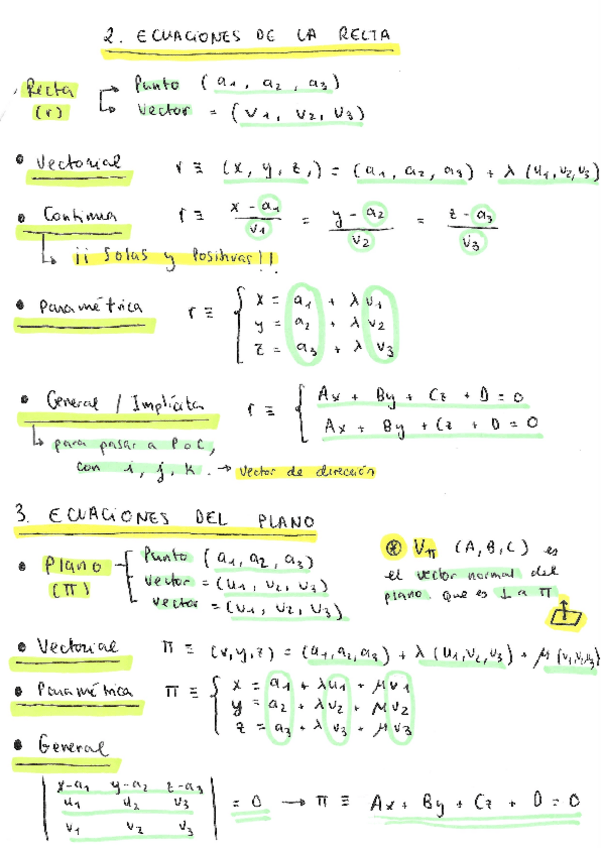 2. ECUACIONES DE LA RECTA
Recta (r) → Punto (a1, a2, a3)
→ Vector = (v1, v2, v3)
• Vectorial r ≡ (x, y, z,) = (a1, a2, a3) + λ (u1, v2, v3)
• Continua r ≡ x - a1 / v1 = y - a2 / v2 = z - a3 / v3
↳ ¡¡ Solas y Positivas!!
• Paramétrica r ≡ { x = a1 + λ v1
y = a2 + λ v2
z = a3 + λ v3
• General / Implícita r ≡ { Ax + By + Cz + D = 0
Ax + By + Cz + D = 0
↳ para pasar a P o C,
con i, j, k. → vector de dirección
3. ECUACIONES DEL PLANO
• Plano (π) { Punto (a1, a2, a3)
vector = (u1, v2, v3)
vector = (v1, v2, v3)
⊛ Vπ (A, B, C) es
el vector normal del
plano. que es ⊥ a π
• Vectorial π ≡ (x, y, z) = (a1, a2, a3) + λ (u1, v2, v3) + μ (v1, v2, v3)
• Paramétrica π ≡ { x = a1 + λ u1 + μ v1
y = a2 + λ v2 + μ v2
z = a3 + λ v3 + μ v3
• General
| x-a1 y-a2 z-a3 |
| u1 u2 v3 | = 0 → π ≡ Ax + By + Cz + D = 0
| v1 v2 v3 |